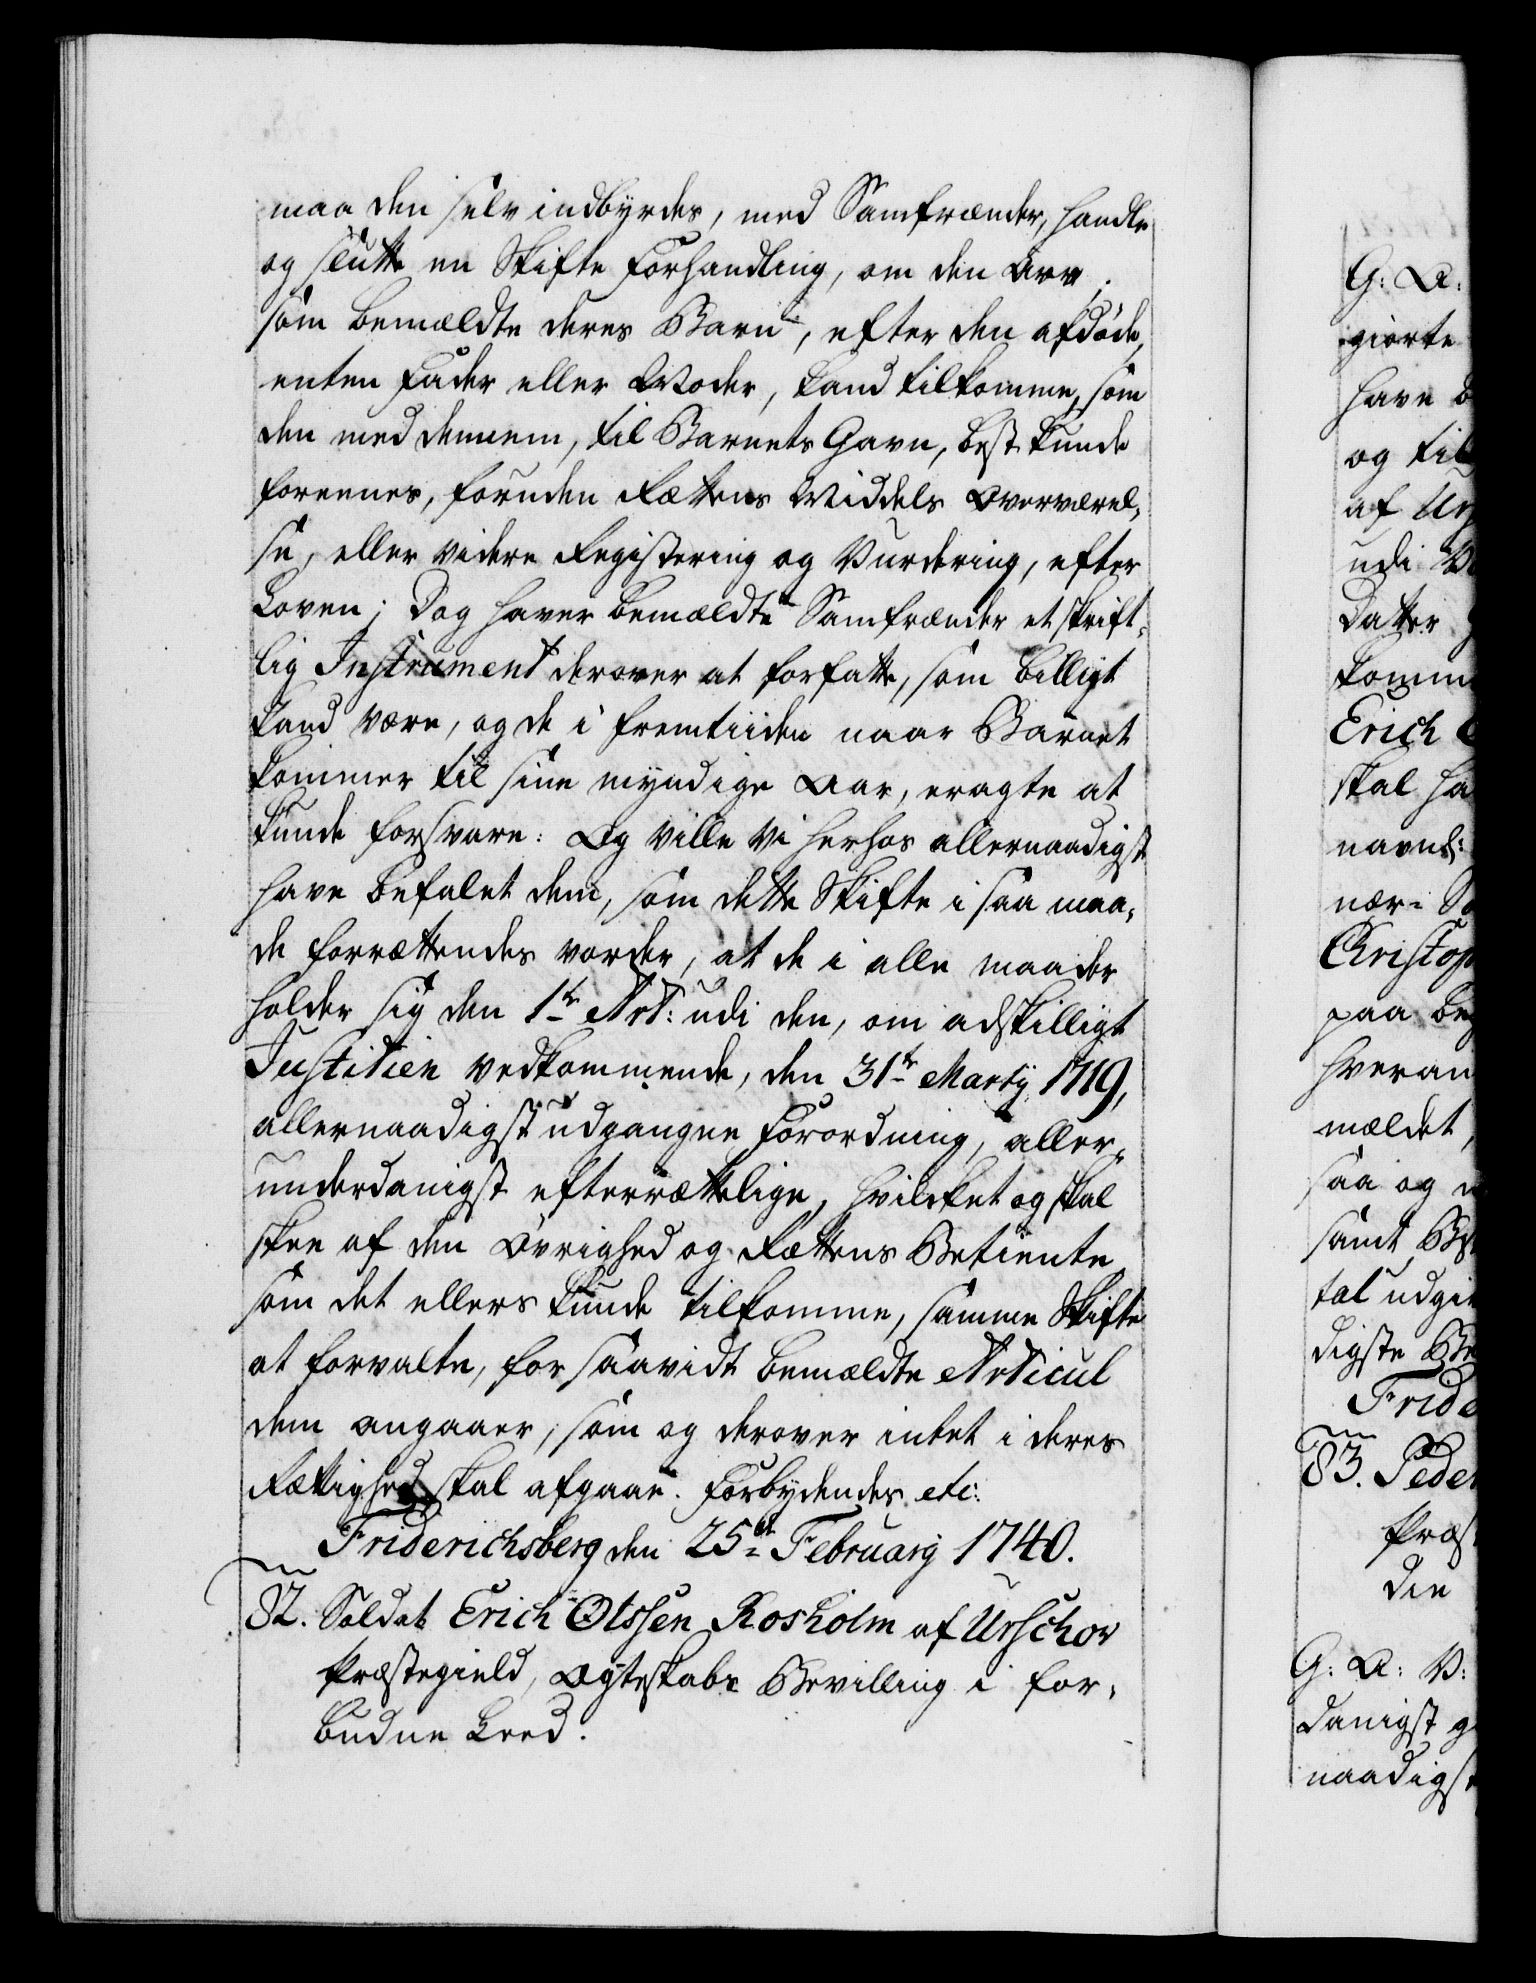 maa den selv indbyrdes, med Samfrænder, handle
og slutte en Skifte Forhandling, om den Arv
som bemældte deres Barn, efter den afdøde,
enten Fader eller Moder, kand tilkomme, som
den med dennem, til Barnets Gavn, best kunde
foreenes, foruden Rættens Middels Overværel-
se, eller videre Registering og Vurdering, efter
Loven; Dog haver bemældte Samfrænder et skrift-
lig Instrument derover at forfatte, som billigt
kand være, og de i fremtiiden naar Barnet
kommer til sine myndige Aar, eragte at
kunde forsvare: Og ville Vi herhos allernaadigst
have befalet dem, som dette Skifte i saa maa-
de forrættendes vorder, at de i alle maader
holder sig den 1te Art: udi den, om adskilligt
Justitien vedkommende, den 31te Martij 1719,
allernaadigst udgangne Forordning, aller-
underdanigst efterrættelige, hvilcket og skal
skee af den Øvrighed og Rættens Betiente
som det ellers kunde tilkomme, samme Skifte
at forvalte, for saavidt bemældte Articul
dem angaaer, som og derover intet i deres
Rættighed skal afgaae. Forbydendes etc:
Friderichsberg den 25de Februarij 1740.
82. Soldat Erich Olssen Rosholm af Urschov
Præstegield, Ægteskabs Bevilling i for-
budne Leed.
G: A:
giorte
have
og til
af
udi
Datter
komm
Erich
skal ha
navnl:
nær-
Christop
paa be
hveran
mældet,
saa og
samt
tal udgi
digste Be
Fride
83. Peder
Præst
den
G: A: V:
danigst g
naadigst